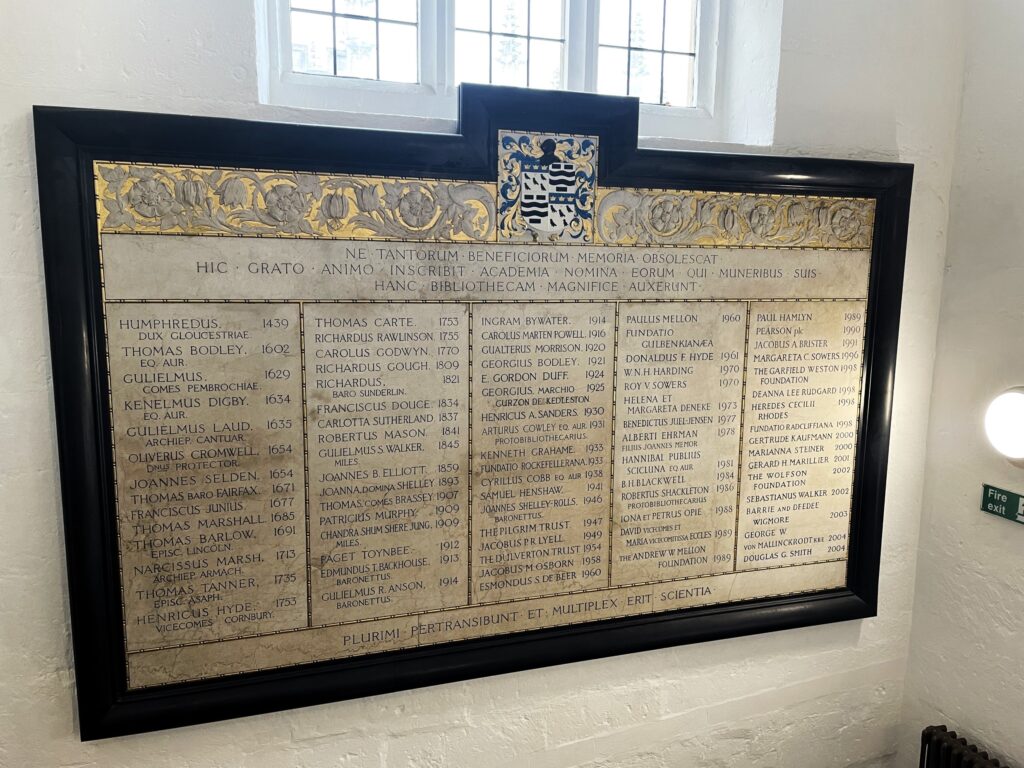 NE · TANTORUM · BENEFICIORUM · MEMORIA · OBSOLESCAT ·
HIC · GRATO · ANIMO · INSCRIBIT · ACADEMIA · NOMINA · EORUM · QUI · MUNERIBUS · SUIS ·
HANC · BIBLIOTHECAM · MAGNIFICE · AUXERUNT ·
HUMPHREDUS, 1439
DUX GLOUCESTRIAE.
THOMAS BODLEY, 1602
EQ. AUR.
GULIELMUS, 1629
COMES PEMBROCHIAE.
KENELMUS DIGBY, 1634
EQ. AUR.
GULIELMUS LAUD, 1635
ARCHIEP. CANTUAR.
OLIVERUS CROMWELL, 1654
DNUS PROTECTOR.
JOANNES SELDEN, 1654
THOMAS BARO FAIRFAX, 1671
FRANCISCUS JUNIUS 1677
THOMAS MARSHALL. 1685
THOMAS BARLOW, 1691
EPISC. LINCOLN.
NARCISSUS MARSH, 1713
ARCHIEP. ARMACH.
THOMAS TANNER, 1735
EPISC. ASAPH.
HENRICUS HYDE, 1753
VICECOMES CORNBURY.
THOMAS CARTE. 1753
RICHARDUS RAWLINSON. 1755
CAROLUS GODWYN. 1770
RICHARDUS GOUGH. 1809
RICHARDUS, 1821
BARO SUNDERLIN.
FRANCISCUS DOUCE. 1834
CARLOTTA SUTHERLAND. 1837
ROBERTUS MASON. 1841
GULIELMUS S. WALKER, 1845
MILES.
JOANNES B. ELLIOTT. 1859
JOANNA, DOMINA SHELLEY 1893
THOMAS, COMES BRASSEY. 1907
PATRICIUS MURPHY. 1909
CHANDRA SHUM SHERE JUNG, 1909
MILES.
PAGET TOYNBEE. 1912
EDMUNDUS T. BACKHOUSE, 1913
BARONETTUS.
GULIELMUS R. ANSON, 1914
BARONETTUS.
INGRAM BYWATER. 1914
CAROLUS MARTEN POWELL. 1916
GUALTERUS MORRISON. 1920
GEORGIUS BODLEY. 1921
E. GORDON DUFF. 1924
GEORGIUS, MARCHIO 1925
CURZON DE KEDLESTON
HENRICUS A. SANDERS. 1930
ARTURUS COWLEY EQ. AUR. 1931
PROTOBIBLIOTHECARIUS.
KENNETH GRAHAME. 1933
FUNDATIO ROCKEFELLERANA. 1933
CYRILLUS COBB EQ. AUR 1938
SAMUEL HENSHAW. 1941
JOANNES SHELLEY-ROLLS. 1946
BARONETTUS.
THE PILGRIM TRUST. 1947
JACOBUS P. R. LYELL. 1949
THE DULVERTON TRUST 1954
JACOBUS M OSBORN 1958
ESMONDUS S. DE BEER 1960
PAULUS MELLON 1960
FUNDATIO
GULBENKIANÆA
DONALDUS F. HYDE 1961
W.N.H. HARDING 1970
ROY V. SOWERS 1970
HELENA ET
MARGARETA DENEKE 1973
BENEDICTUS JUEL-JENSEN 1977
ALBERTI EHRMAN 1978
FILIUS JOANNES MEMOR
HANNIBAL PUBLIUS
SCICLUNA EQ AUR 1981
B.H. BLACKWELL 1984
ROBERTUS SHACKLETON 1986
PROTOBIBLIOTHECARIUS
IONA ET PETRUS OPIE 1988
DAVID VICECOMES ET
MARIA VICECOMITISSA ECCLES 1989
THE ANDREW W MELLON
FOUNDATION 1989
PAUL HAMLYN 1989
PEARSON plc 1990
JACOBUS A BRISTER 1991
MARGARETA C. SOWERS 1996
THE GARFIELD WESTON 1998
FOUNDATION
DEANNA LEE RUDGARD 1998
HEREDES CECILII 1998
RHODES
FUNDATIO RADCLIFFIANA 1998
GERTRUDE KAUFMANN 2000
MARIANNA STEINER 2000
GERARD H. MARILLIER 2001
THE WOLFSON 2002
FOUNDATION
SEBASTIANUS WALKER 2002
BARRIE AND DEEDEE
WIGMORE 2003
GEORGE W
VON MALLINCKRODT KBE 2004
DOUGLAS G. SMITH 2004
PLURIMI · PERTRANSIBUNT · ET · MULTIPLEX · ERIT · SCIENTIA ·
Fire
exit